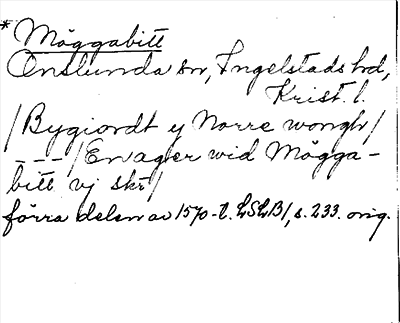 * Möggabitt
Onslunda sn, Ingelstads hrd,
Krist. l.
/Bygiordt y Norre wongh/
---/En ager wid Mögga-
bitt vj skr/
förra delen av 1570-t. LSLB1, s. 233. orig.